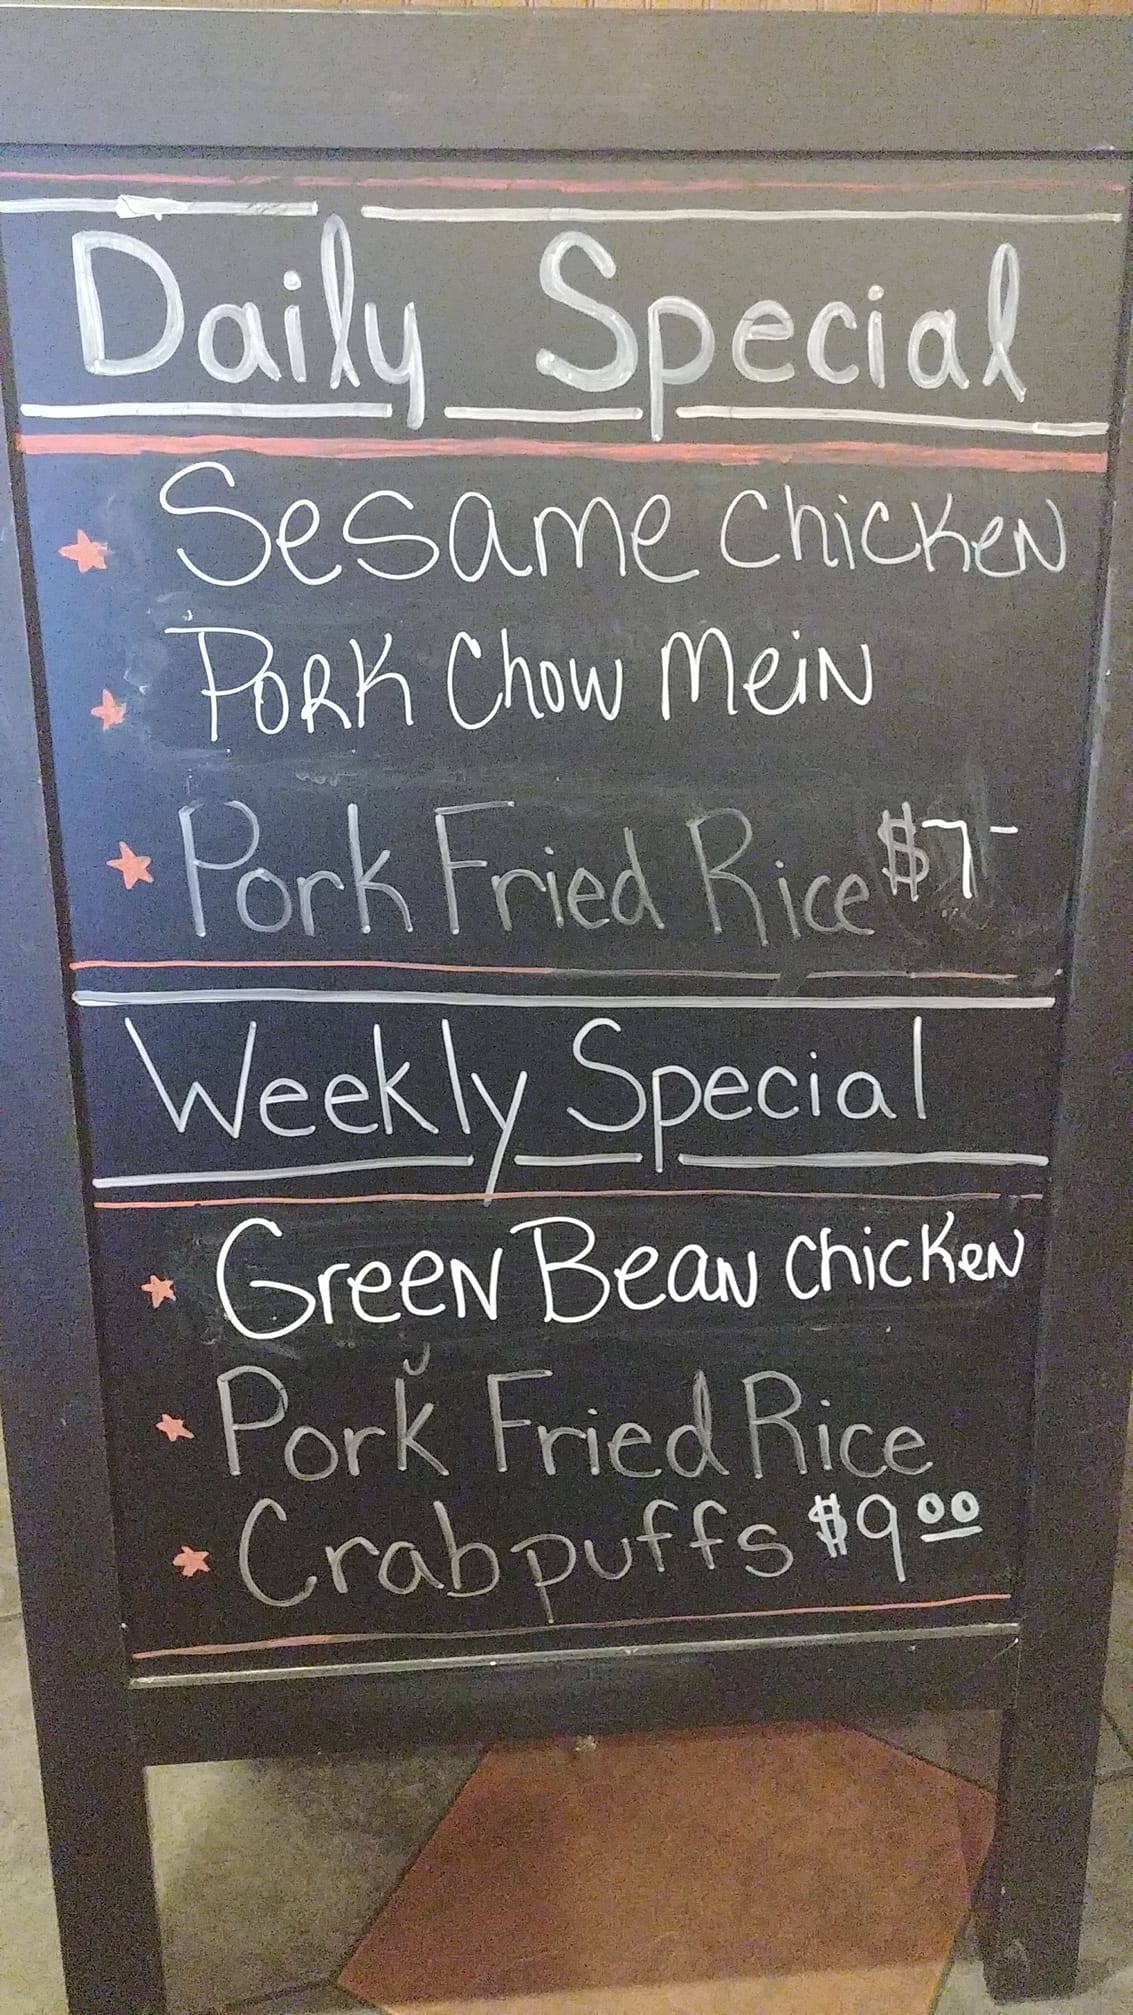 Daily Special
Sesame Chicken
Pork Chow Mein
Pork Fried Rice $7-
Weekly Special
Green Bean Chicken
Pork Fried Rice
Crab puffs $9 00